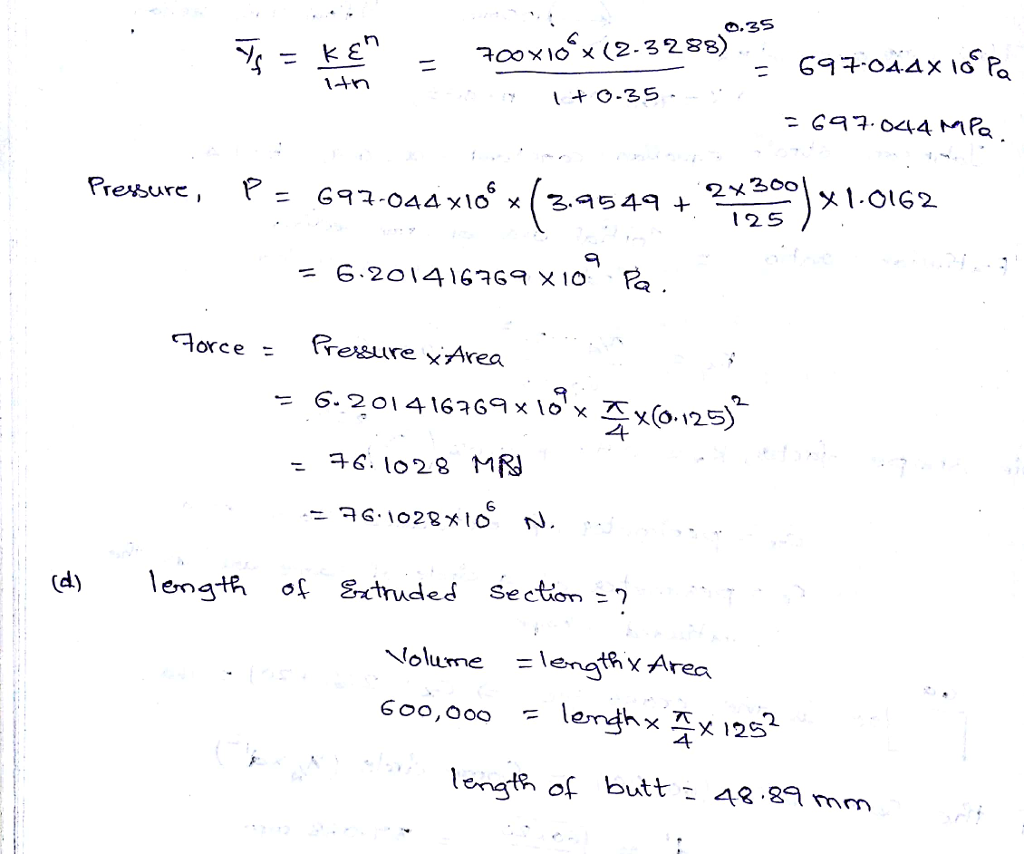 Ȳf = kεⁿ / 1+n = 700×10⁶×(2.3288)^0.35 / 1+0.35 = 697.044×10⁶ Pa
= 697.044 MPa.
Pressure, P = 697.044×10⁶ × (3.9549 + 2×300 / 125) × 1.0162
= 6.201416769 ×10⁹ Pa.
Force = Pressure × Area
= 6.201416769×10⁹ × π/4 ×(0.125)²
= 76.1028 MN
= 76.1028×10⁶ N.
(d) length of Extruded section = ?
Volume = length × Area
600,000 = length × π/4 × 125²
length of butt = 48.89 mm